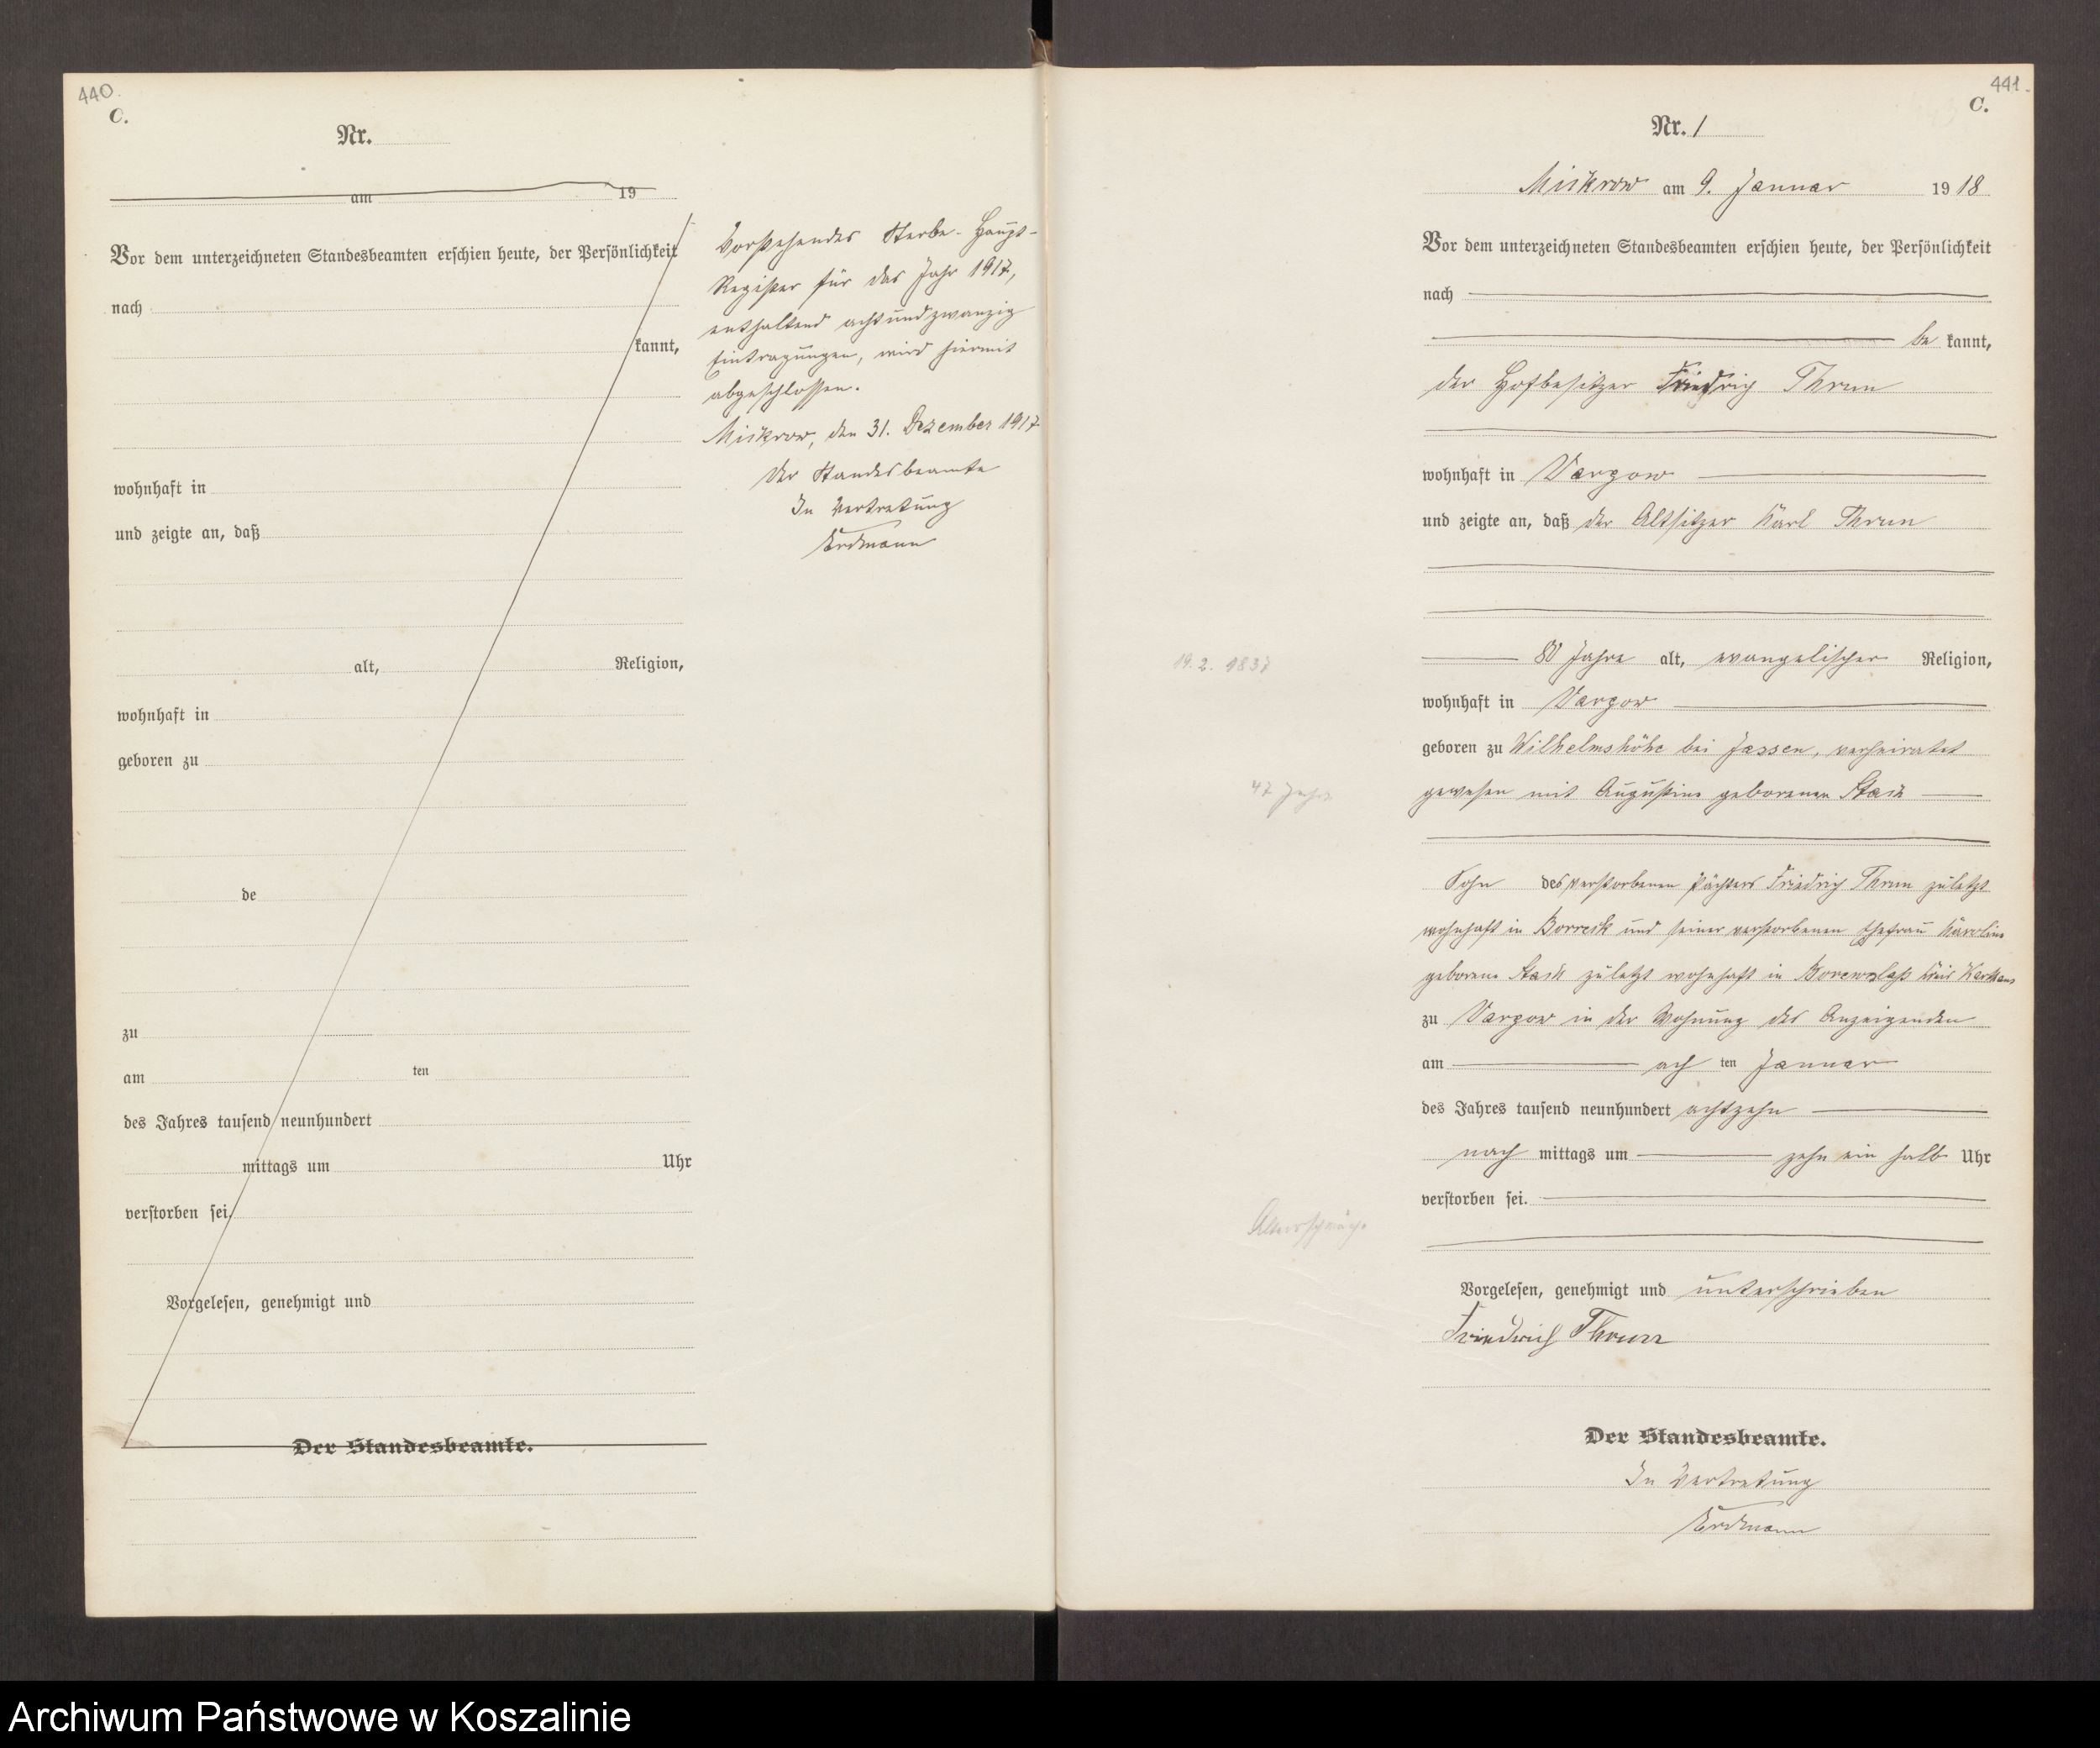 440.
C.
Nr.
am 19
Vor dem unterzeichneten Standesbeamten erschien heute, der Persönlichkeit
nach
kannt,
wohnhaft in
und zeigte an, daß
alt, Religion,
wohnhaft in
geboren zu
de
zu
am ten
des Jahres tausend neunhundert
mittags um Uhr
verstorben sei.
Vorgelesen, genehmigt und
Der Standesbeamte.
Vorstehendes Sterbe-Haupt-
Register für das Jahr 1917,
enthaltend achtundzwanzig
Eintragungen, wird hiermit
abgeschlossen.
Mickrow, den 31. Dezember 1917
Der Standesbeamte
In Vertretung
Erdmann
441.
C.
Nr. 1
Mickrow am 9. Januar 1918
Vor dem unterzeichneten Standesbeamten erschien heute, der Persönlichkeit
nach
be kannt,
der Hofbesitzer Friedrich Thrun
wohnhaft in Vargow
und zeigte an, daß der Altsitzer Karl Thrun
19. 2. 1837
80 Jahre alt, evangelischer Religion,
wohnhaft in Vargow
geboren zu Wilhelmshöhe bei Jassen, verheiratet
47 Jahre
gewesen mit Augustine geborenen Stach
Sohn des verstorbenen Pächters Friedrich Thrun zuletzt
wohnhaft in Borreck und seiner verstorbenen Ehefrau Karoline
geborene Stach zuletzt wohnhaft in Kreis Karthaus
zu Vargow in der Wohnung des Anzeigenden
am ach ten Januar
des Jahres tausend neunhundert achtzehn
nach mittags um zehn ein halb Uhr
verstorben sei.
Altersschwäche
Vorgelesen, genehmigt und unterschrieben
Friedrich Thrun
Der Standesbeamte.
In Vertretung
Erdmann
Archiwum Państwowe w Koszalinie